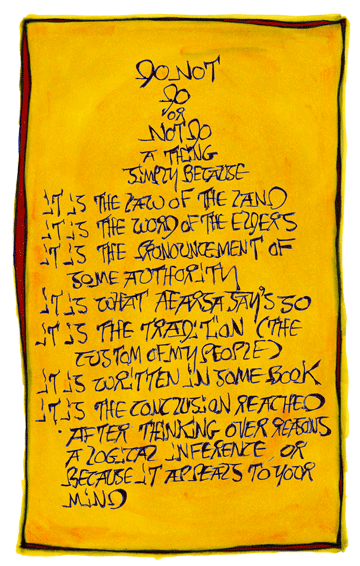 DO NOT
DO
OR
NOT DO
A THING
SIMPLY BECAUSE
IT IS THE LAW OF THE LAND
IT IS THE WORD OF THE ELDERS
IT IS THE PRONOUNCEMENT OF
SOME AUTHORITY
IT IS WHAT HEARSAY SAY'S SO
IT IS THE TRADITION (THE
CUSTOM OF MY PEOPLE)
IT IS WRITTEN IN SOME BOOK
IT IS THE CONCLUSION REACHED
AFTER THINKING OVER REASONS
A LOGICAL INFERENCE OR
BECAUSE IT APPEALS TO YOUR
MIND